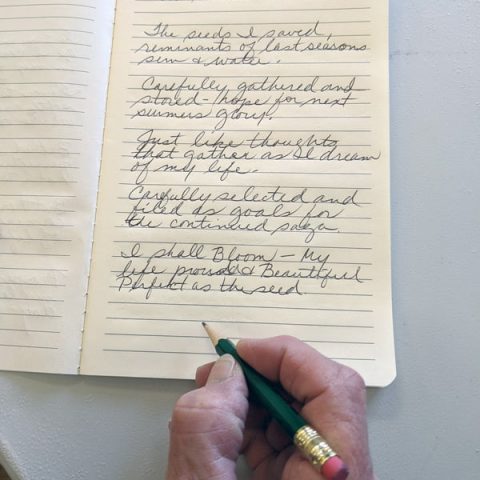 The seeds I saved,
reminants of last seasons
sun & water.
Carefully gathered and
stored - hope for next
summers glory.
Just like thoughts
that gather as I dream
of my life.
Carefully selected and
filed as goals for
the continued saga.
I shall Bloom - My
life proud & Beautiful
Perfect as the seed.